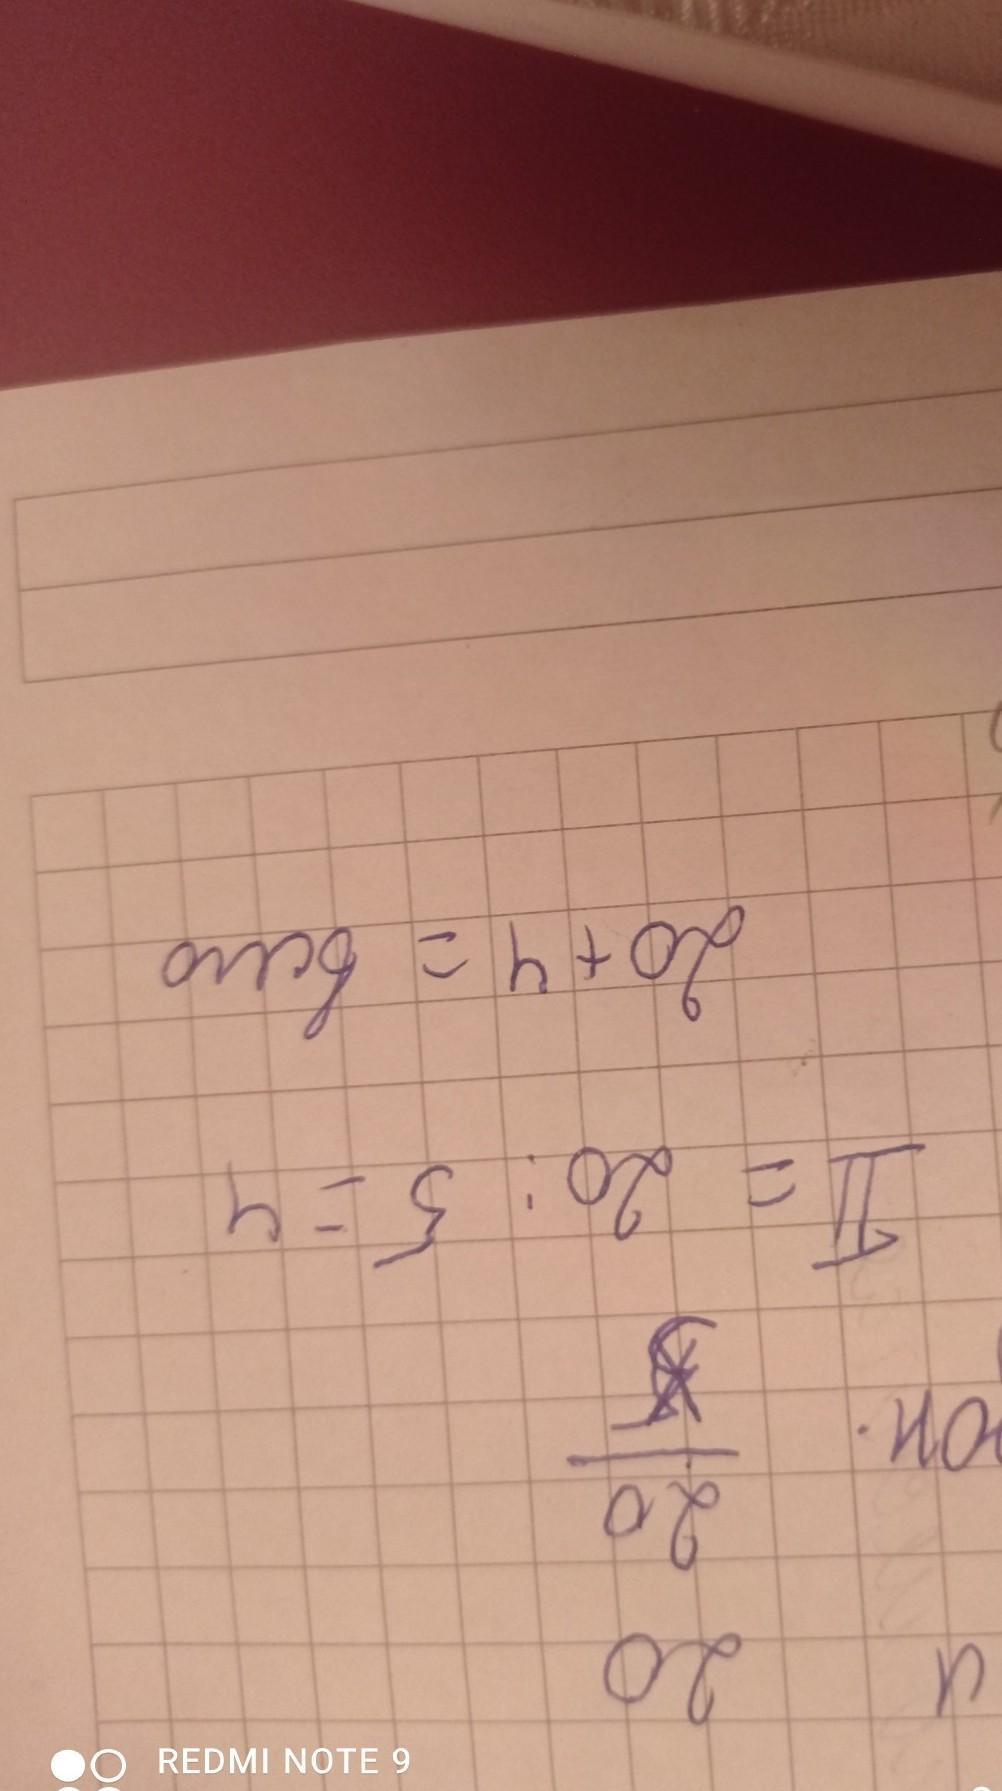 20
20
5
II = 20 : 5 = 4
20 + 4 =
REDMI NOTE 9